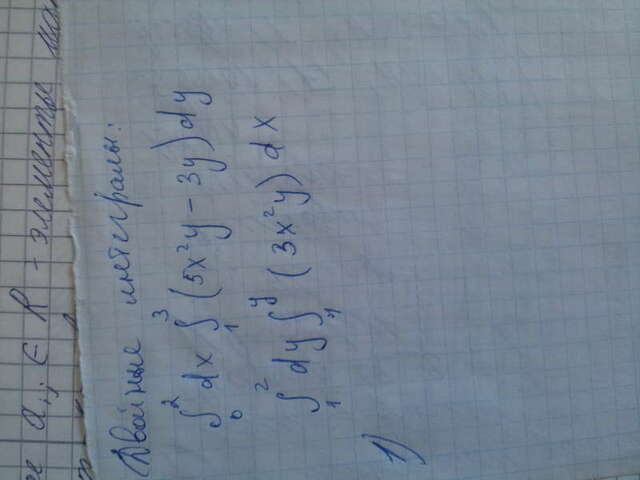 a_{ij} ∈ R - элементы
Двойные интегралы:
∫₀² dx ∫₁³ (5x²y - 3y) dy
∫₁² dy ∫₁^y (3x²y) dx
1)